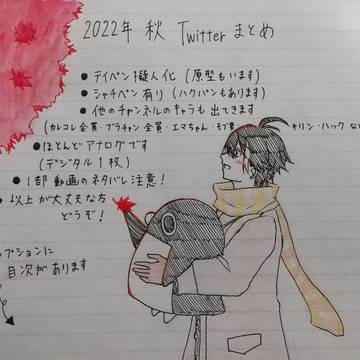 2022年 秋 Twitterまとめ
● テイペン擬人化 (原型もいます)
● シャチペン有り (ハクパンもあります)
● 他のチャンネルのキャラも出てきます
(カレコレ全員・ブラチャン全員・エマちゃん・モブ キリン・ハックなど
● ほとんどアナログです
(デジタル1枚)
● 1部動画のネタバレ注意!
以上が大丈夫な方
どうぞ!
プションに
目次があります